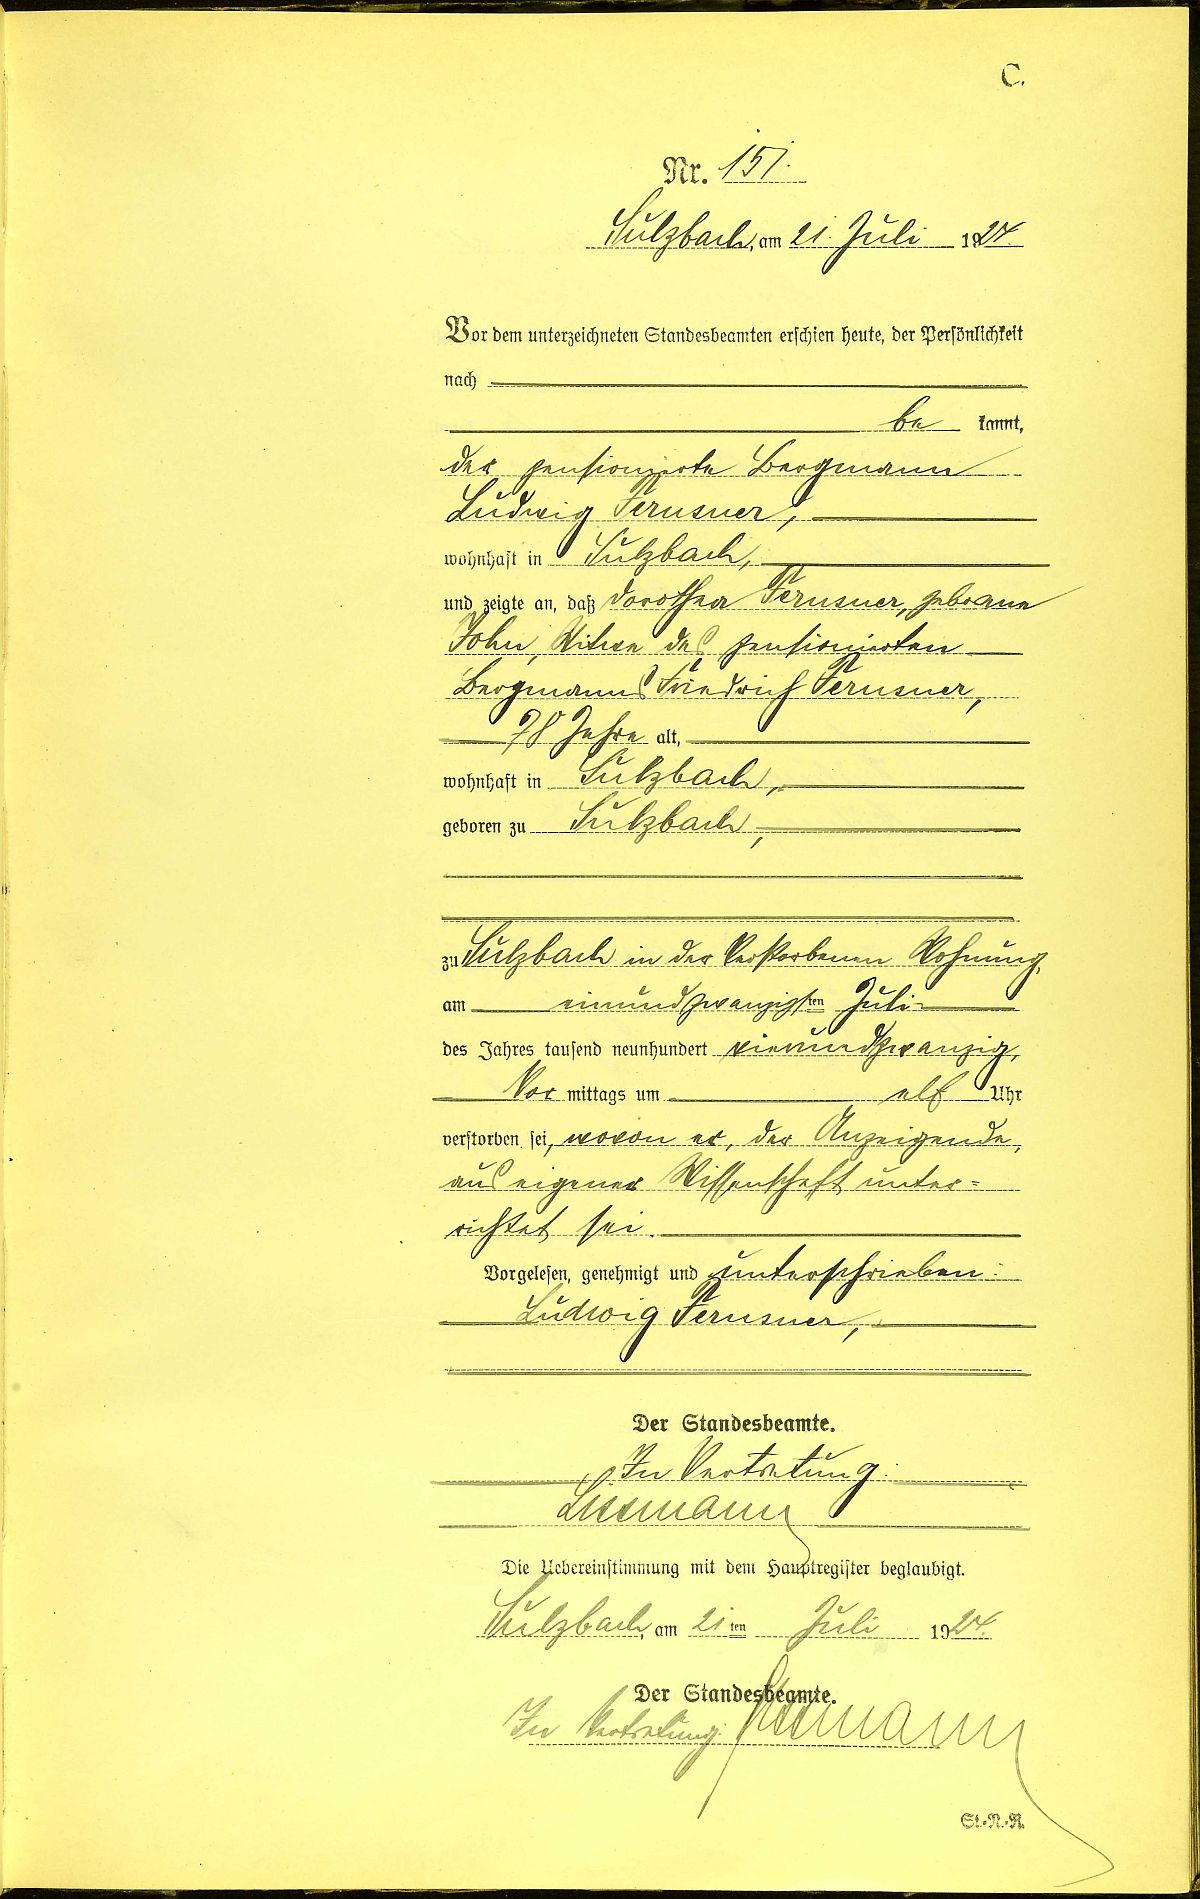 C.
Nr. 151.
Sulzbach, am 21. Juli 1924.
Vor dem unterzeichneten Standesbeamten erschien heute, der Persönlichkeit
nach
be kannt,
der pensionierte Bergmann
Ludwig Fernsner,
wohnhaft in Sulzbach,
und zeigte an, daß Dorothea Fernsner, geborene
John, Witwe des pensionierten
Bergmanns Friedrich Fernsner,
78 Jahre alt,
wohnhaft in Sulzbach,
geboren zu Sulzbach,
zu Sulzbach in der Verstorbenen Wohnung,
am einundzwanzigsten Juli
des Jahres tausend neunhundert vierundzwanzig,
Vor mittags um elf Uhr
verstorben sei, wovon er, der Anzeigende,
aus eigener Wissenschaft unter=
richtet sei.
Vorgelesen, genehmigt und unterschrieben:
Ludwig Fernsner,
Der Standesbeamte.
In Vertretung:
Die Uebereinstimmung mit dem Hauptregister beglaubigt.
Sulzbach, am 21ten Juli 1924.
Der Standesbeamte.
In Vertretung:
St.-N.-R.